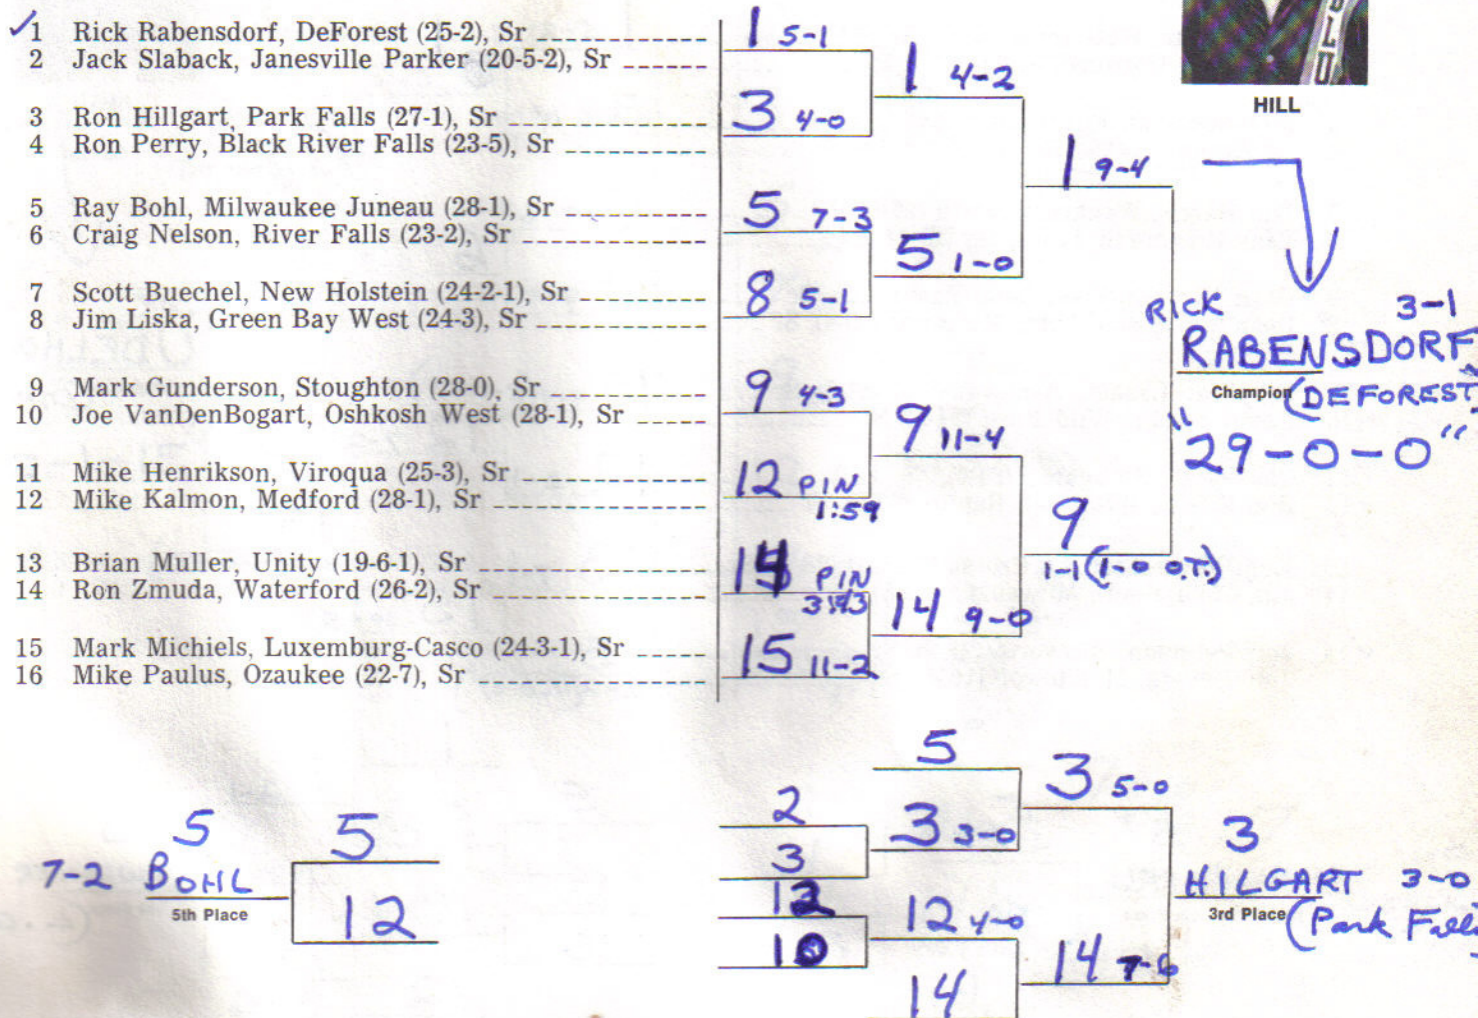 HILL
✓1 Rick Rabensdorf, DeForest (25-2), Sr
2 Jack Slaback, Janesville Parker (20-5-2), Sr
3 Ron Hillgart, Park Falls (27-1), Sr
4 Ron Perry, Black River Falls (23-5), Sr
5 Ray Bohl, Milwaukee Juneau (28-1), Sr
6 Craig Nelson, River Falls (23-2), Sr
7 Scott Buechel, New Holstein (24-2-1), Sr
8 Jim Liska, Green Bay West (24-3), Sr
9 Mark Gunderson, Stoughton (28-0), Sr
10 Joe VanDenBogart, Oshkosh West (28-1), Sr
11 Mike Henrikson, Viroqua (25-3), Sr
12 Mike Kalmon, Medford (28-1), Sr
13 Brian Muller, Unity (19-6-1), Sr
14 Ron Zmuda, Waterford (26-2), Sr
15 Mark Michiels, Luxemburg-Casco (24-3-1), Sr
16 Mike Paulus, Ozaukee (22-7), Sr
1 5-1
3 4-0
5 7-3
8 5-1
9 4-3
12 PIN
1:59
14 PIN
15 11-2
1 4-2
5 1-0
9 11-4
14 9-0
1 9-4
9
1-1 (1-0 O.T.)
RICK 3-1
RABENSDORF
Champion (DEFOREST)
"29-0-0"
5
7-2 BOHL
5th Place
5
12
2
3
12
10
5
3 3-0
12 4-0
14
3 5-0
14 7-6
3
HILGART 3-0
3rd Place (Park Falls